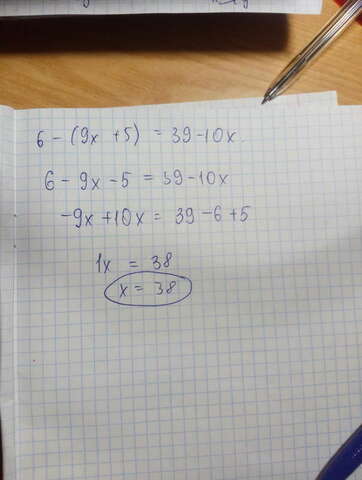 6 - (9x + 5) = 39 - 10x.
6 - 9x - 5 = 39 - 10x
-9x + 10x = 39 - 6 + 5
1x = 38
x = 38